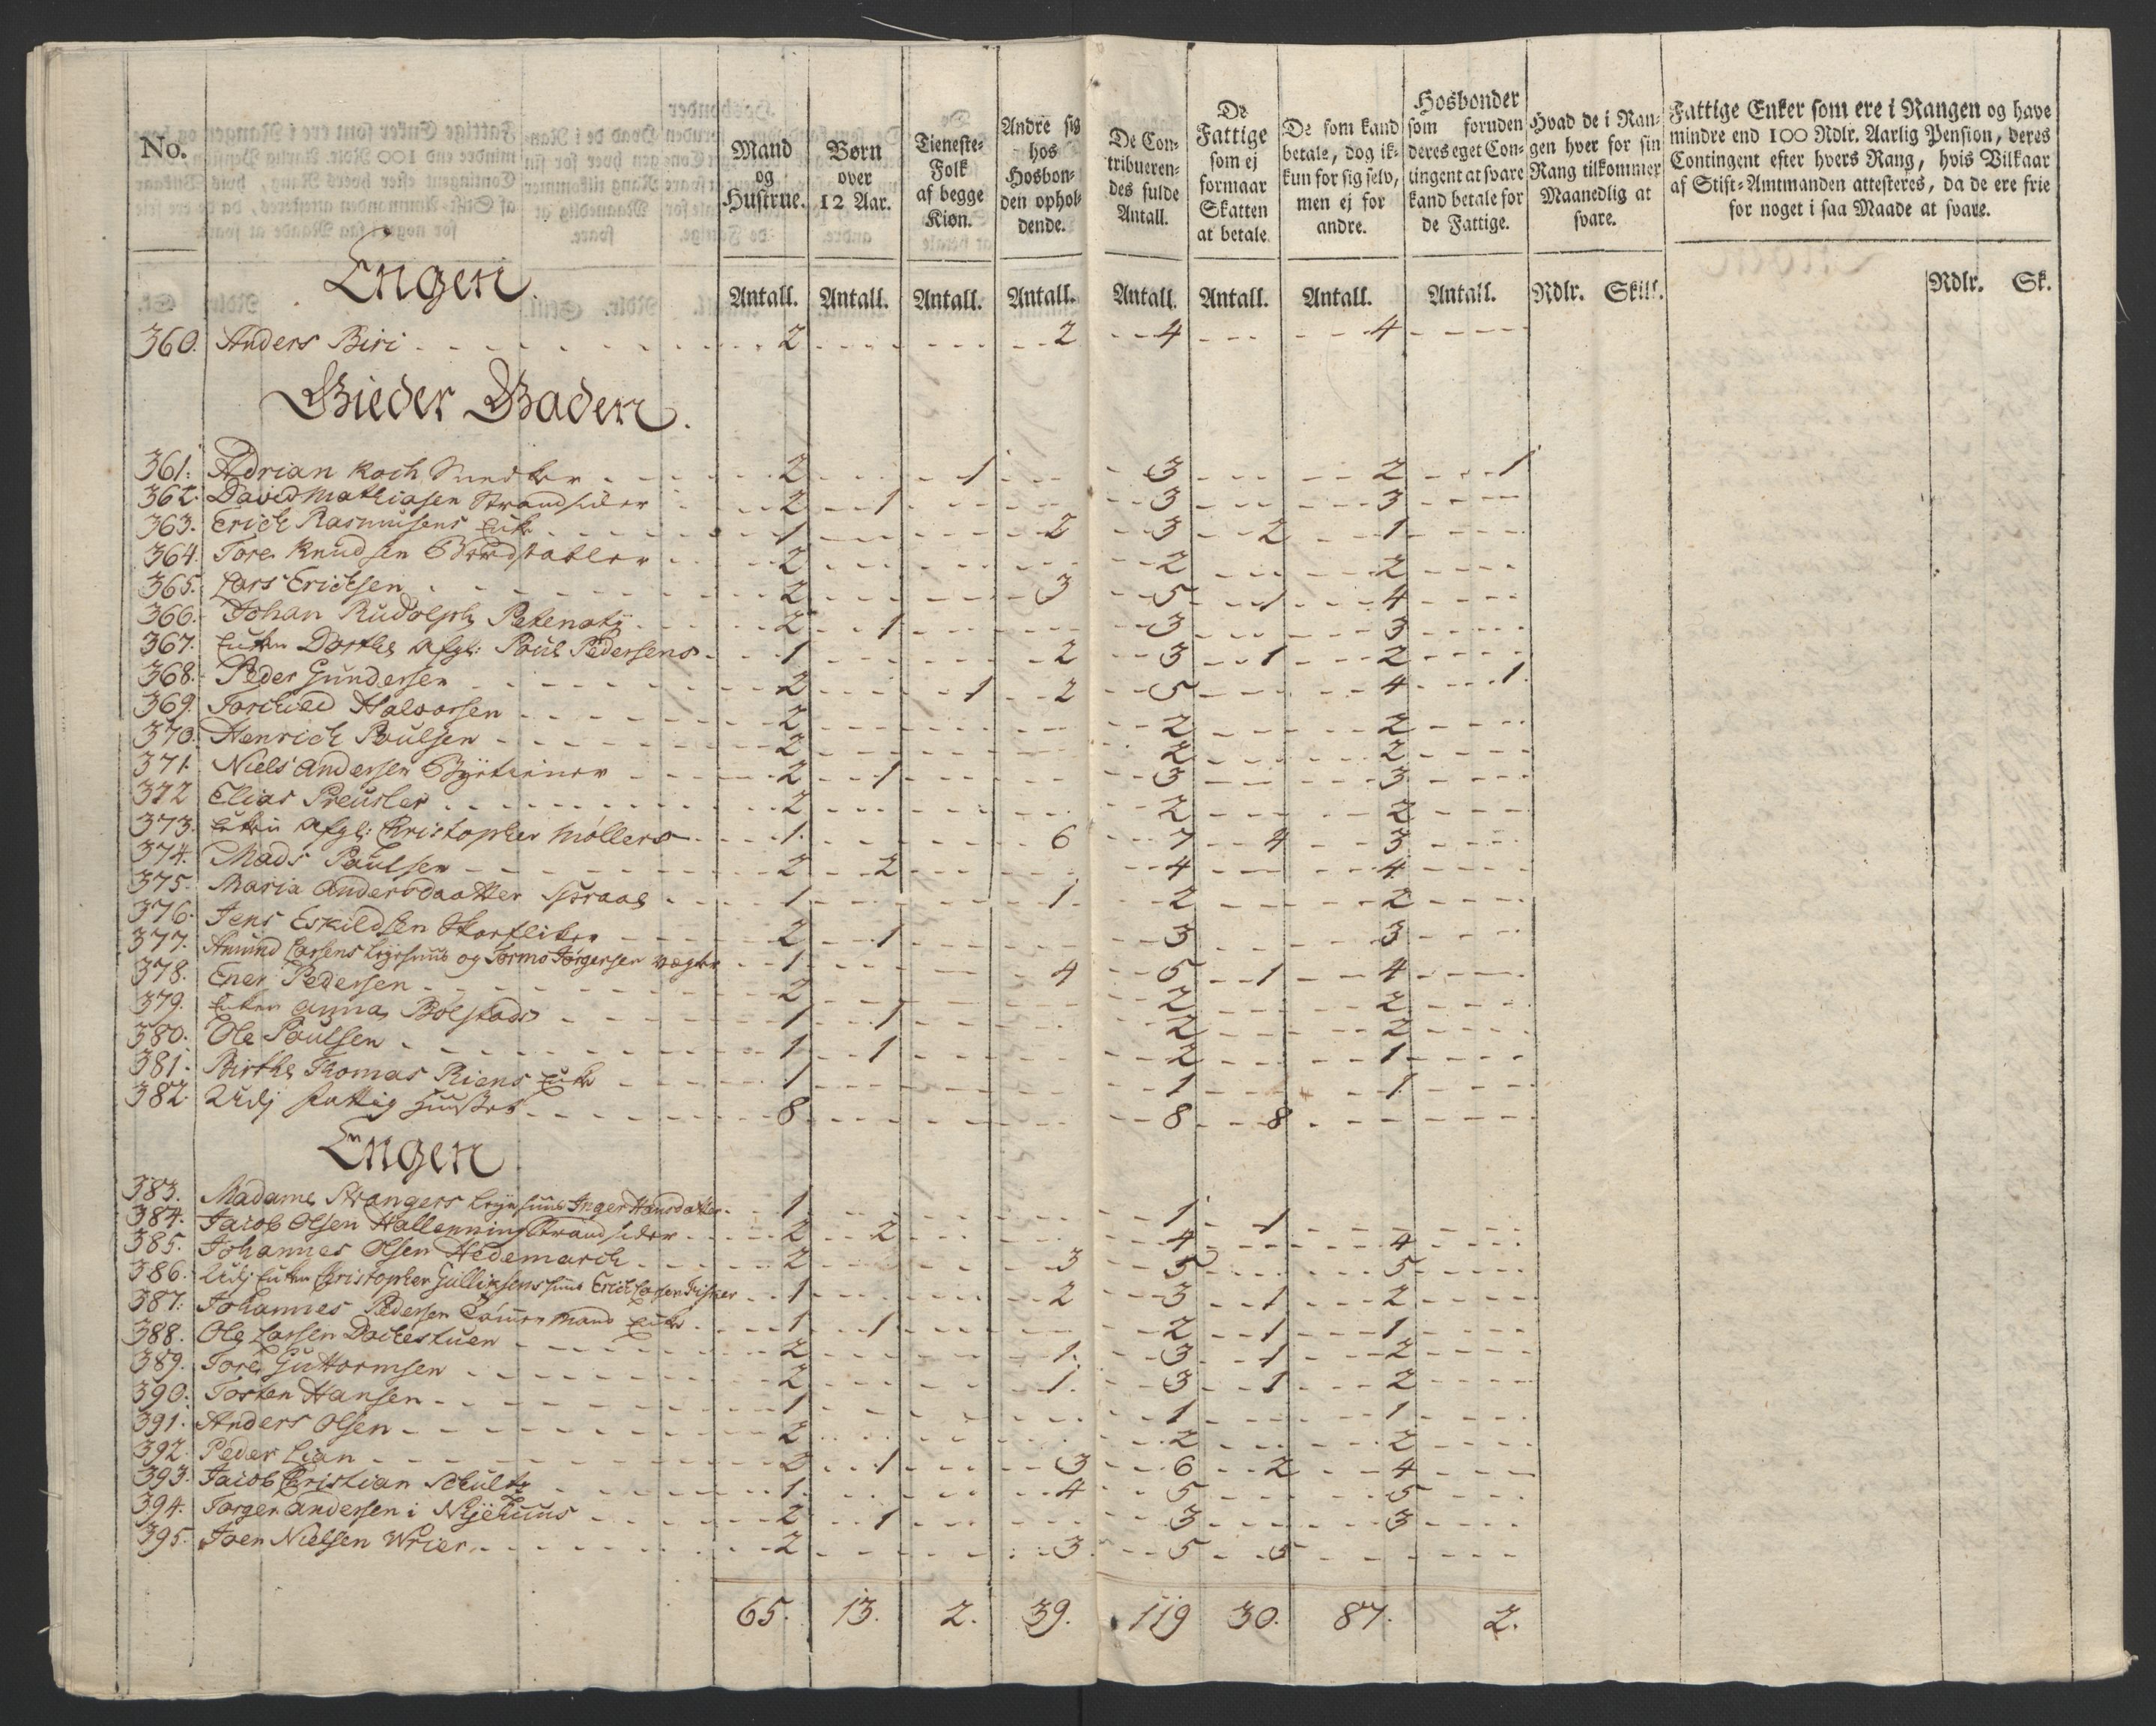 No.
Mand og Hustrue.
Børn over 12 Aar.
Tieneste-Folk af begge Kiøn.
Andre sig hos Hosbonden opholdende.
De Contribuerendes fulde Antall.
De Fattige som ej formaar Skatten at betale.
De som kand betale, dog ikkun for sig selv, men ej for andre.
Hosbonder som foruden deres eget Contingent at svare kand betale for de Fattige.
Hvad de i Rangen hver for sin Rang tilkommer Maanedlig at svare.
Fattige Enker som ere i Rangen og have mindre end 100 Rdlr. Aarlig Pension, deres Contingent efter hvers Rang, hvis Vilkaar af Stift-Amtmanden attesteres, da de ere frie for noget i saa Maade at svare.
Antall. Antall. Antall. Antall. Antall. Antall. Antall. Antall. Rdlr. Skill. Rdlr. Sk.
Engen.
360. Anders Biri 2 2 4 4
Gieder Gaden.
361. Adrian Koch 2 1 3 2 1
362. David Mathiasen Strandsider 2 1 3 3
363. Erich Rasmusens Enke 1 2 3 2 1
364. Tore Knudsen 2 2 2
365. Lars Erichsen 2 3 5 1 4
366. Johan Rudolph Petenati 2 1 3 3
367. Enken Dorthe Afgl: Poul Pedersens 1 2 3 1 2
368. Peder Gundersen 2 1 2 5 4 1
369. Torchild Halvorsen 2 2 2
370. Henrich Poulsen 2 2 2
371. Niels Andersen Bytiener 2 1 3 3
372 Elias Preusler 2 2 2
373. Enken Afgl: Christopher Møllers 1. 6 7 4 3
374. Mads Poulsen 2 2 4 4
375. Maria Andersdaatter 1 1. 2 2
376. Jens Eskildsen 2 1 3 3
377. Amund Larsens Leyehuus og Tormo Jørgensen Vægter 1 4 5 1 4
378. Ener Pedersen 2 2 2
379. Enken Anna Bolstads 1 1 2 2
380. Ole Poulsen 1 1 2 1
381. Birthe Thomas Riens Enke 1 1 1.
382. Udj fattig Huuset 8 8 8
Engen
383. Madame Strangers Leyehuus Inger Hansdatter 1 1 1
384. Jacob Olsen Hallenning Strandsider 2 2 4 4
385. Johannes Olsen Hedemarch 2 3 5 5
386. Udj Enken Christopher Gulliksens huus Erich Larsen Fisker 1 2 3 1 2
387. Johannes Pedersen Tømmermand Enke 1 1 2 1 1
388. Ole Larsen Dockestuen 2 1. 3 1 2
389. Tore Guttormsen 2 1. 3 1 2
390. Torsten Hansen 1 1 1
391. Anders Olsen 2 2 2
392. Peder Lian 2 1 3 6 2 4
393. Jacob Christian Schultz 1. 4 5 5
394. Jørgen Andersen i Nyehuus 2 1 3 3
395. Joen Nielsen Wrier 2 3 5 5
65. 13. 2. 39. 119 30. 87. 2.